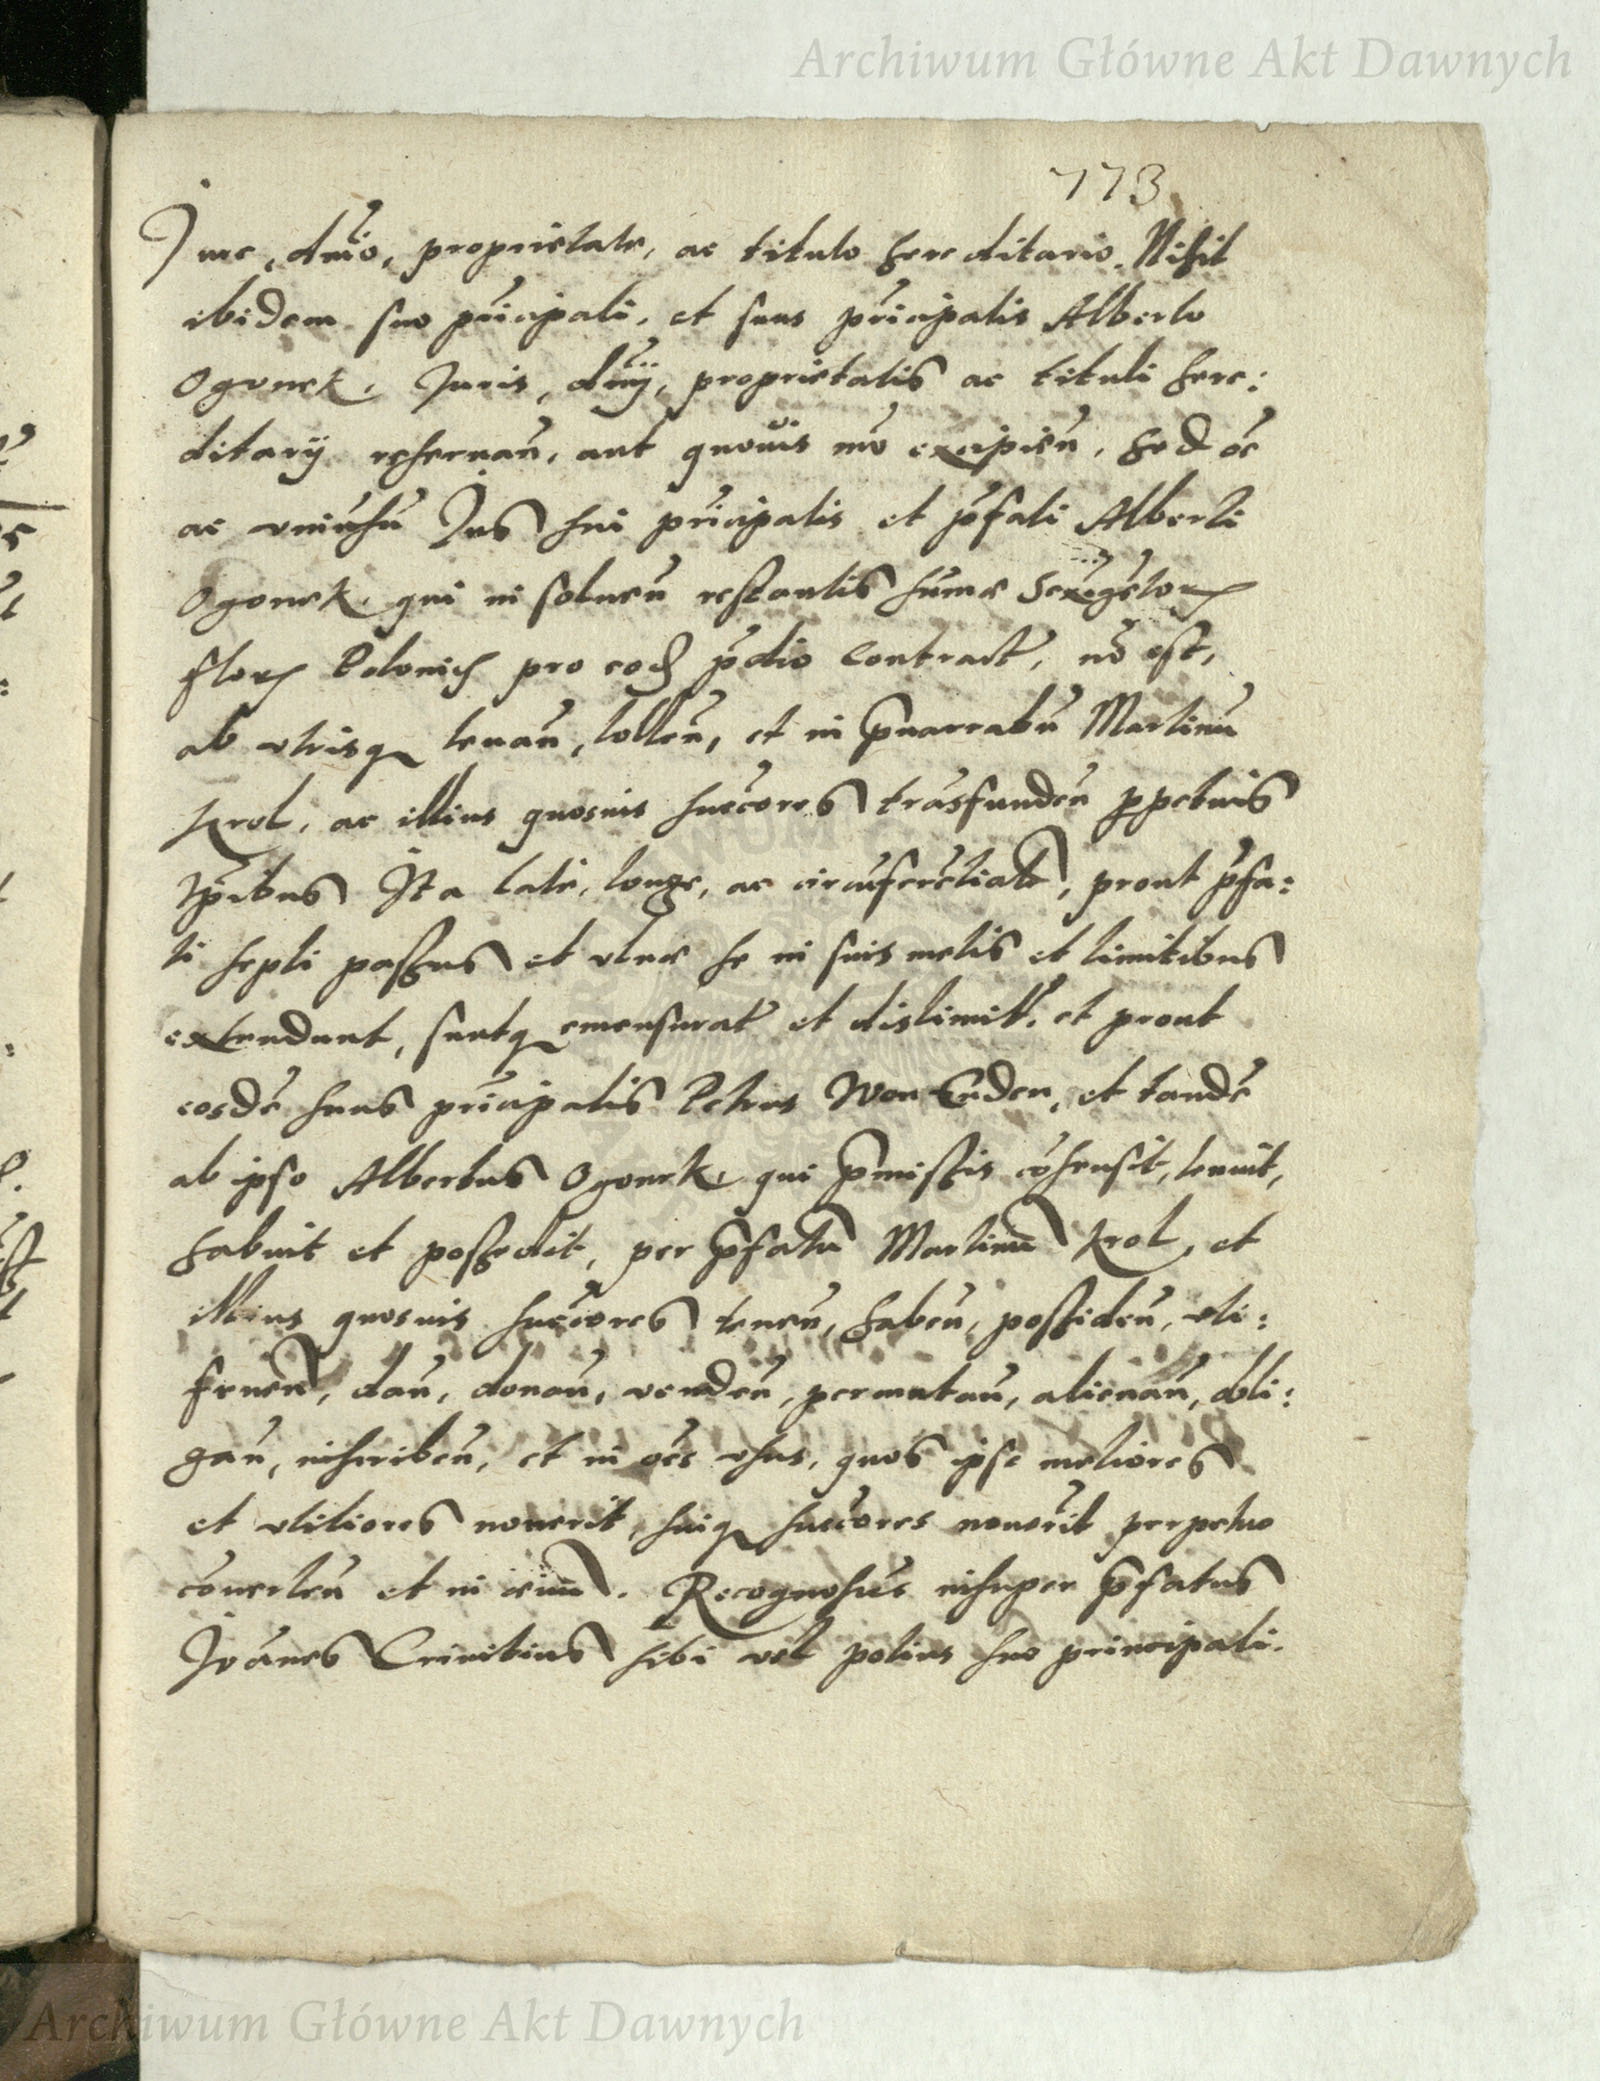 Archiwum Główne Akt Dawnych
773
Jure, dnio, proprietate, ac titulo hereditario. Nihil
ibidem suo principali, et suus principalis Alberto
Ogonek, Juris, dnij, proprietatis ac tituli here:
ditarij reservan, aut quovis mo excipien, sed oe
ac universu Jus sui principalis et pfati Alberti
Ogonek, qui in solven restantis sume Sexagetorum
flor Polonich pro eod pdio contract, no est,
ab utrisq levan, tollen, et in pnarratum Martinu
Krol, ac illius quosvis succores trasfunden ppetuis
tpribus Ita late, longe, ac circuferetialr, prout pfa:
ti septi passus et ulne se in suis metis et limitibus
extendunt, suntq emensurat et dislimit, et prout
eosde suus principalis Petrus Won Enden, et tande
ab ipso Albertus Ogonek, qui pmissis cosensit, tenuit,
habuit et possedit, per pfatu Martinu Krol, et
illius quosvis succores tenen, haben, possiden, uti:
fruen, dan, donan, venden, permutan, alienan, obli:
gan, inscriben, et in oes usus, quos ipse meliores
et utiliores noverit, suiq succores noverit perpetuo
converten et in evum. Recognosces insuper pfatus
Joanes Crinitius sibi vel potius suo principali.
Archiwum Główne Akt Dawnych